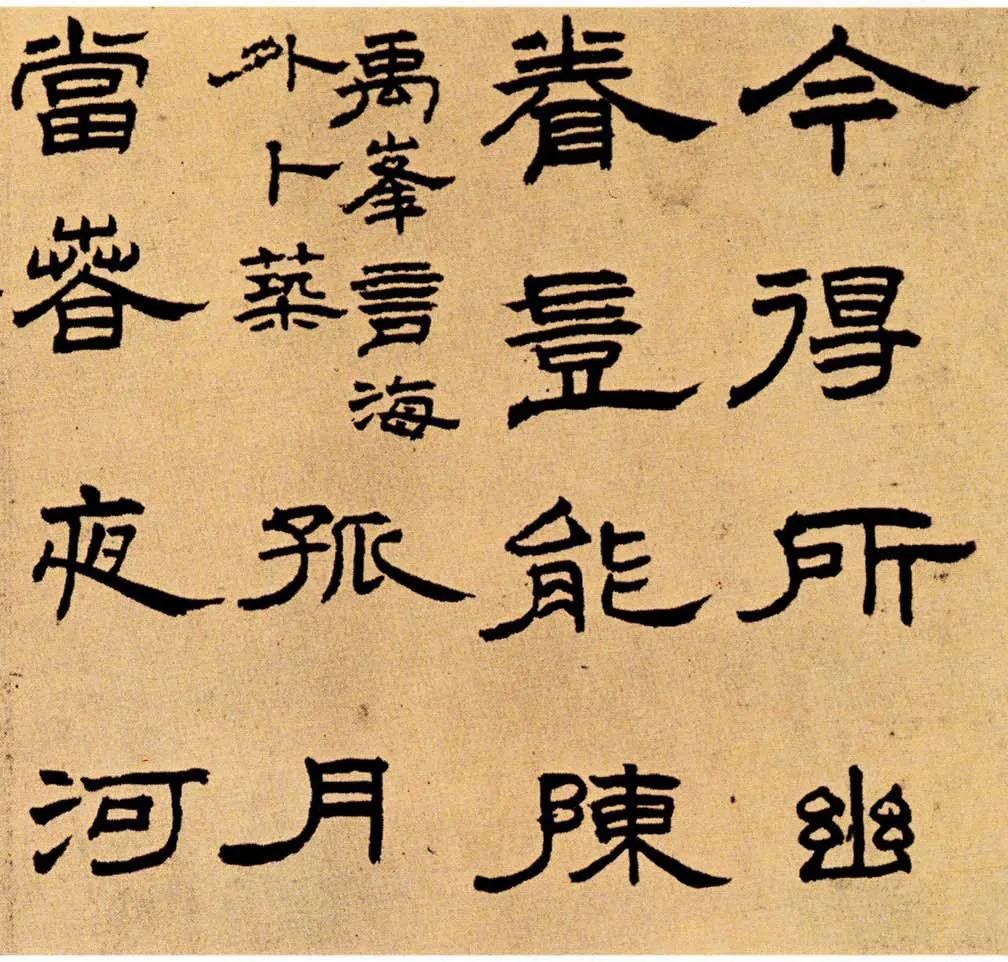 今得所幽
眷豈能陳
禹峯言海
外卜築
孤月
當春夜河